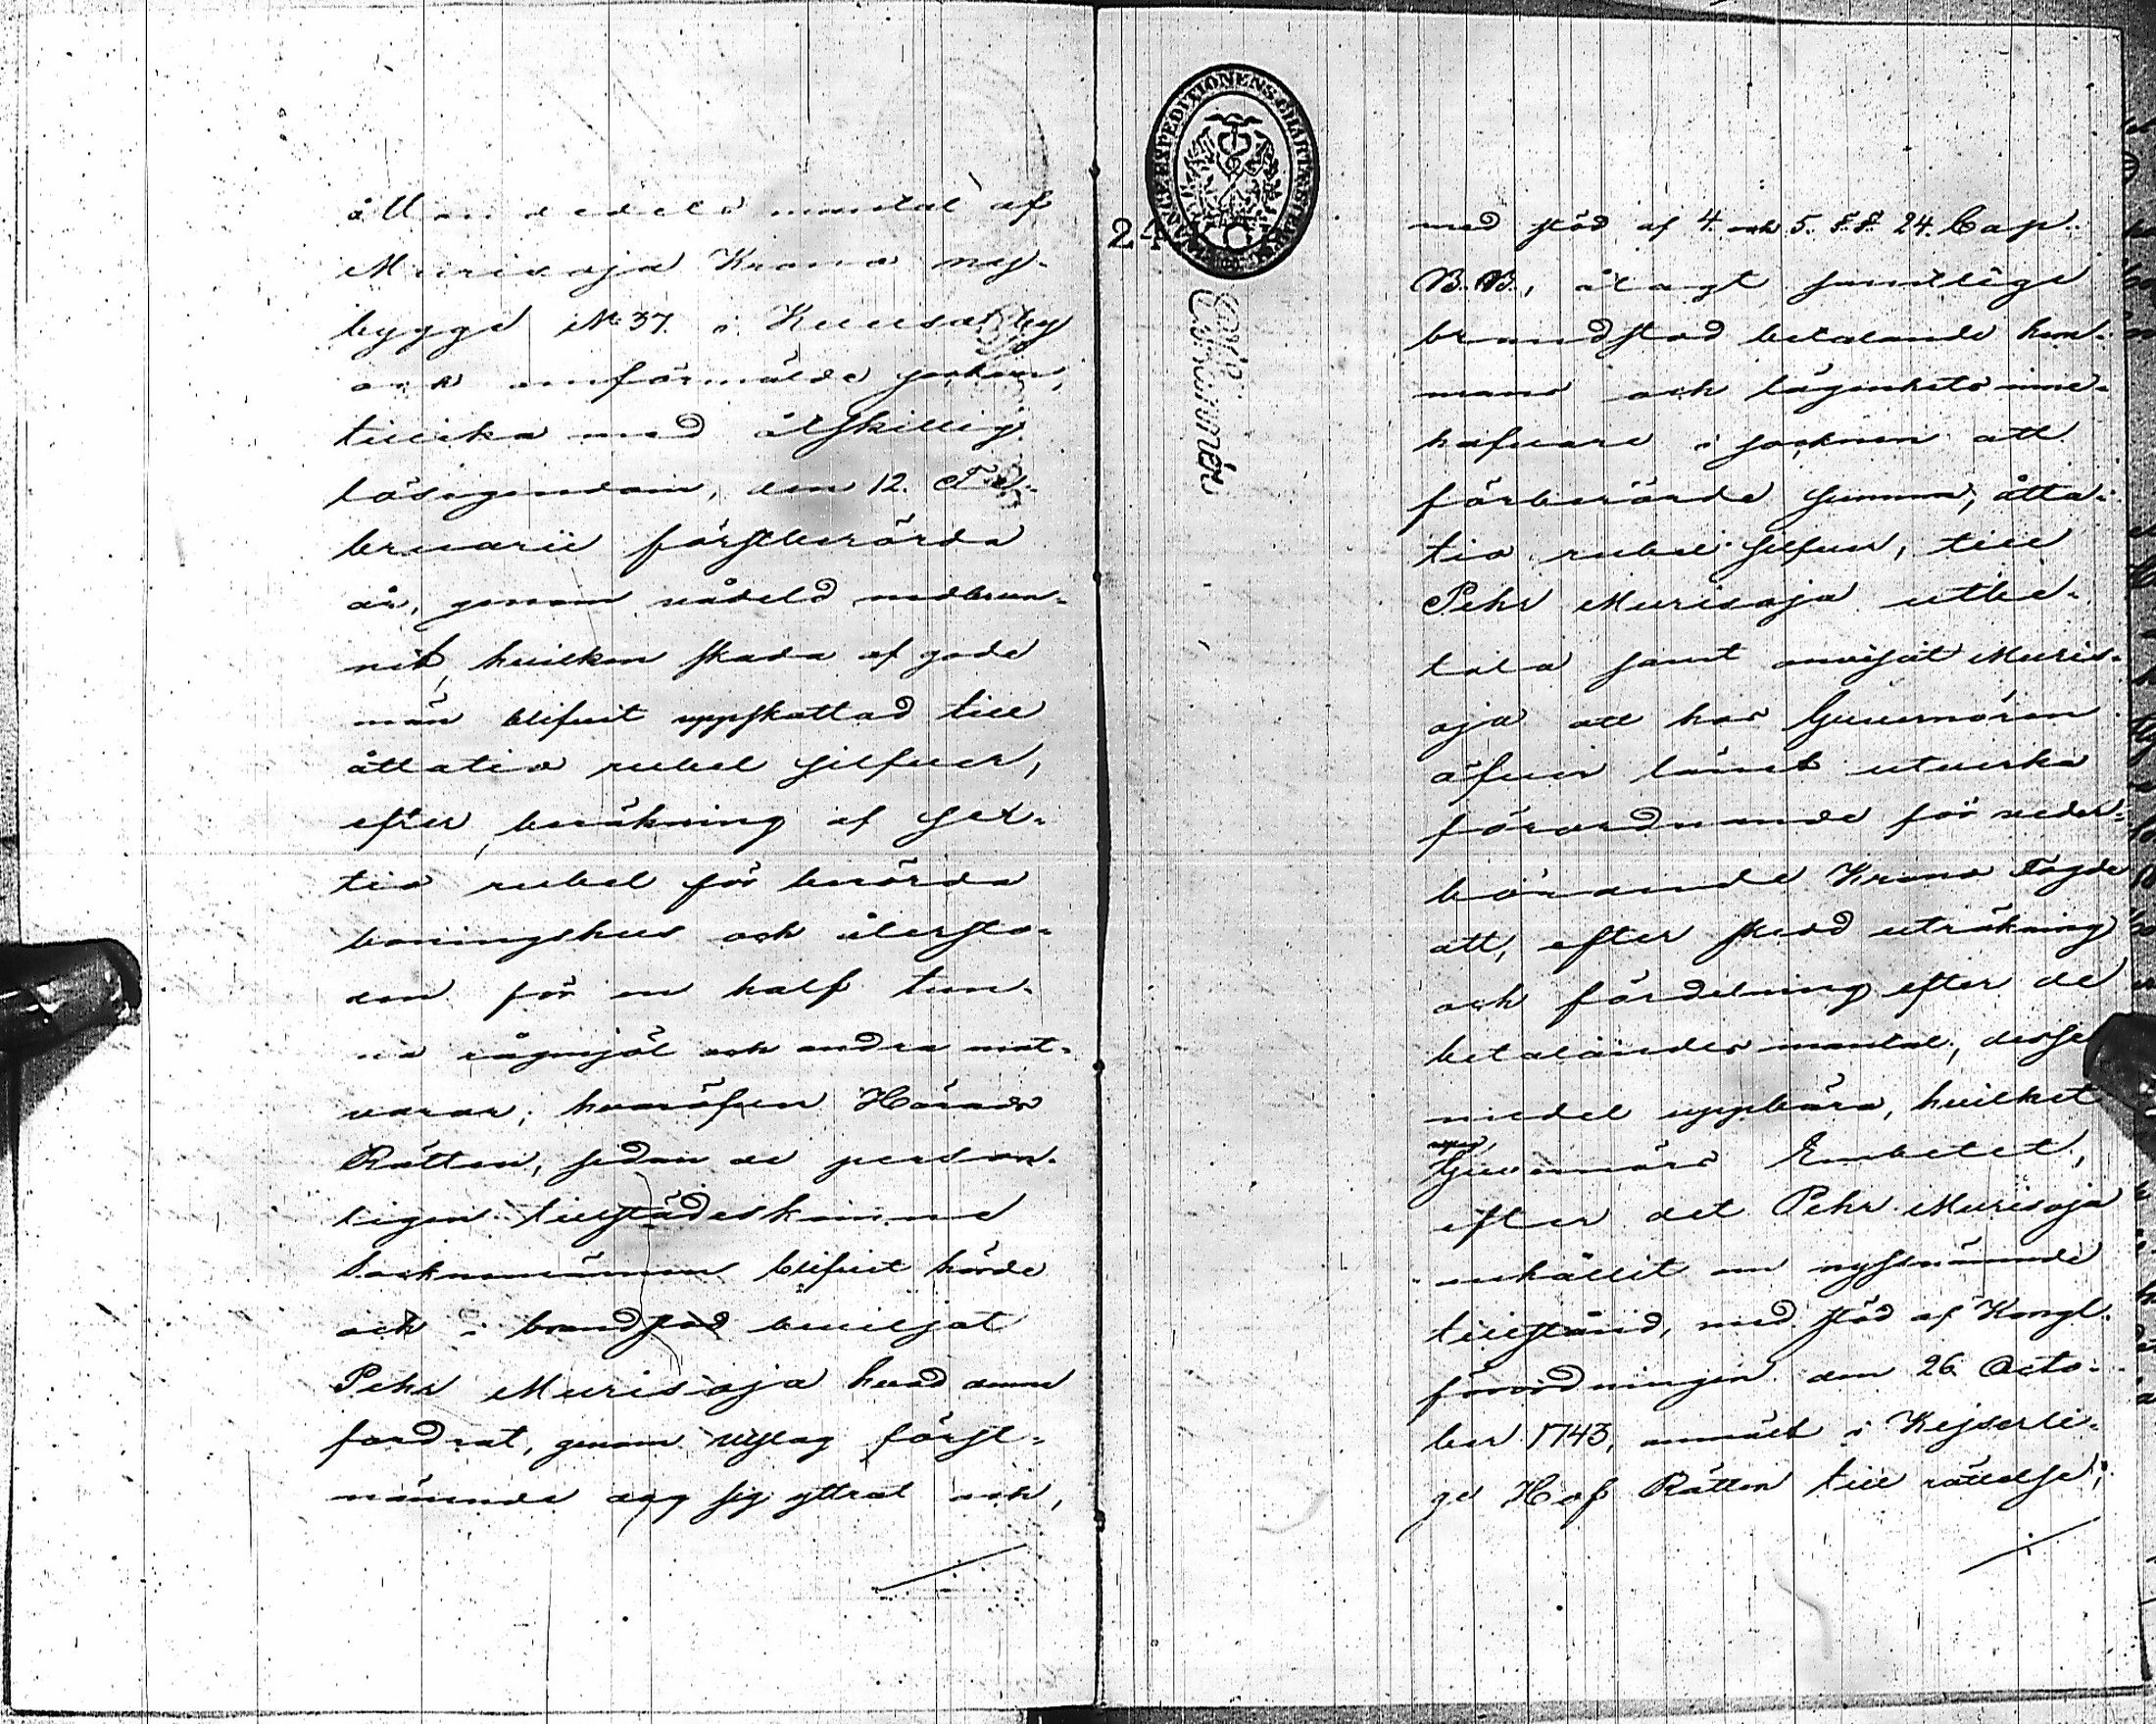 åttondedels mantal af
Murisoja Krono ny-
bygge No 37. i by
och omförmälde socken,
tillika med åtskillig
lösegendom, den 12. Fe-
bruarii förstberörda
år, genom vådeld nedbrun-
nit, hvilken skada af gode
män blifvit uppskattad till
åttatio rubel silfver,
efter beräkning af sex-
tio rubel för berörda
boningshus och återsto-
den för en half tun-
na rågmjöl och andra mat-
varor; hvaröfver Härads
Rätten, sedan de person-
ligen tillstädeskomne
Socknemännen blifvit hörde
och i brandstod beviljat
Pehr Murisoja hvad denne
fordrat, genom utslag först-
nämnde dag sig yttrat och,
24
FINANCE EXPEDITIONENS CHARTÆ
med stöd af 4. och 5. §.§. 24. Cap.
B.B., ålagt samtlige
brandstod betalande hem-
mans och lägenhets inne-
hafvare i socknen att
förberörde summa, åtta-
tio rubel silfver, till
Pehr Murisoja utbe-
tala samt anvisat Muris-
oja att hos Guvernören
öfver länet utverka
förordnande för veder-
börande Krono Fogde
att, efter skedd uträkning
och fördelning efter de
betalandes mantal, desse
medel uppbära, hvilket
Guvernörs Embetet,
efter det Pehr Murisoja
anhållit om nyssnämnde
tillstånd, med stöd af Kongl.
förordningen den 26 Octo-
ber 1743, anmält i Kejserli-
ge Hof Rätten till rättelse;